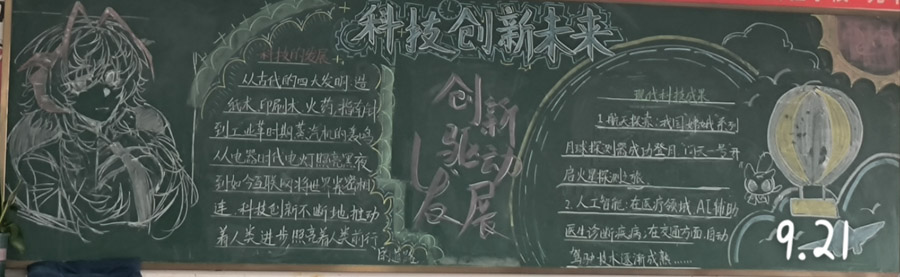 科技创新未来
科技的发展
从古代的四大发明:造
纸术.印刷术.火药.指南针
到工业革时期蒸汽机的轰鸣
从电器时代电灯照亮黑夜
到如今互联网将世界紧密相
连.科技创新不断地推动
着人类进步照亮着人类前行
创新
驱动
发展
现代科技成果
1.航天探索:我国嫦娥系列
月球探测器成功登月.问天一号开
启火星探测之旅
2.人工智能:在医疗领域.AI辅助
医生诊断疾病;在交通方面.自动
驾驶技术逐渐成熟......
9.21